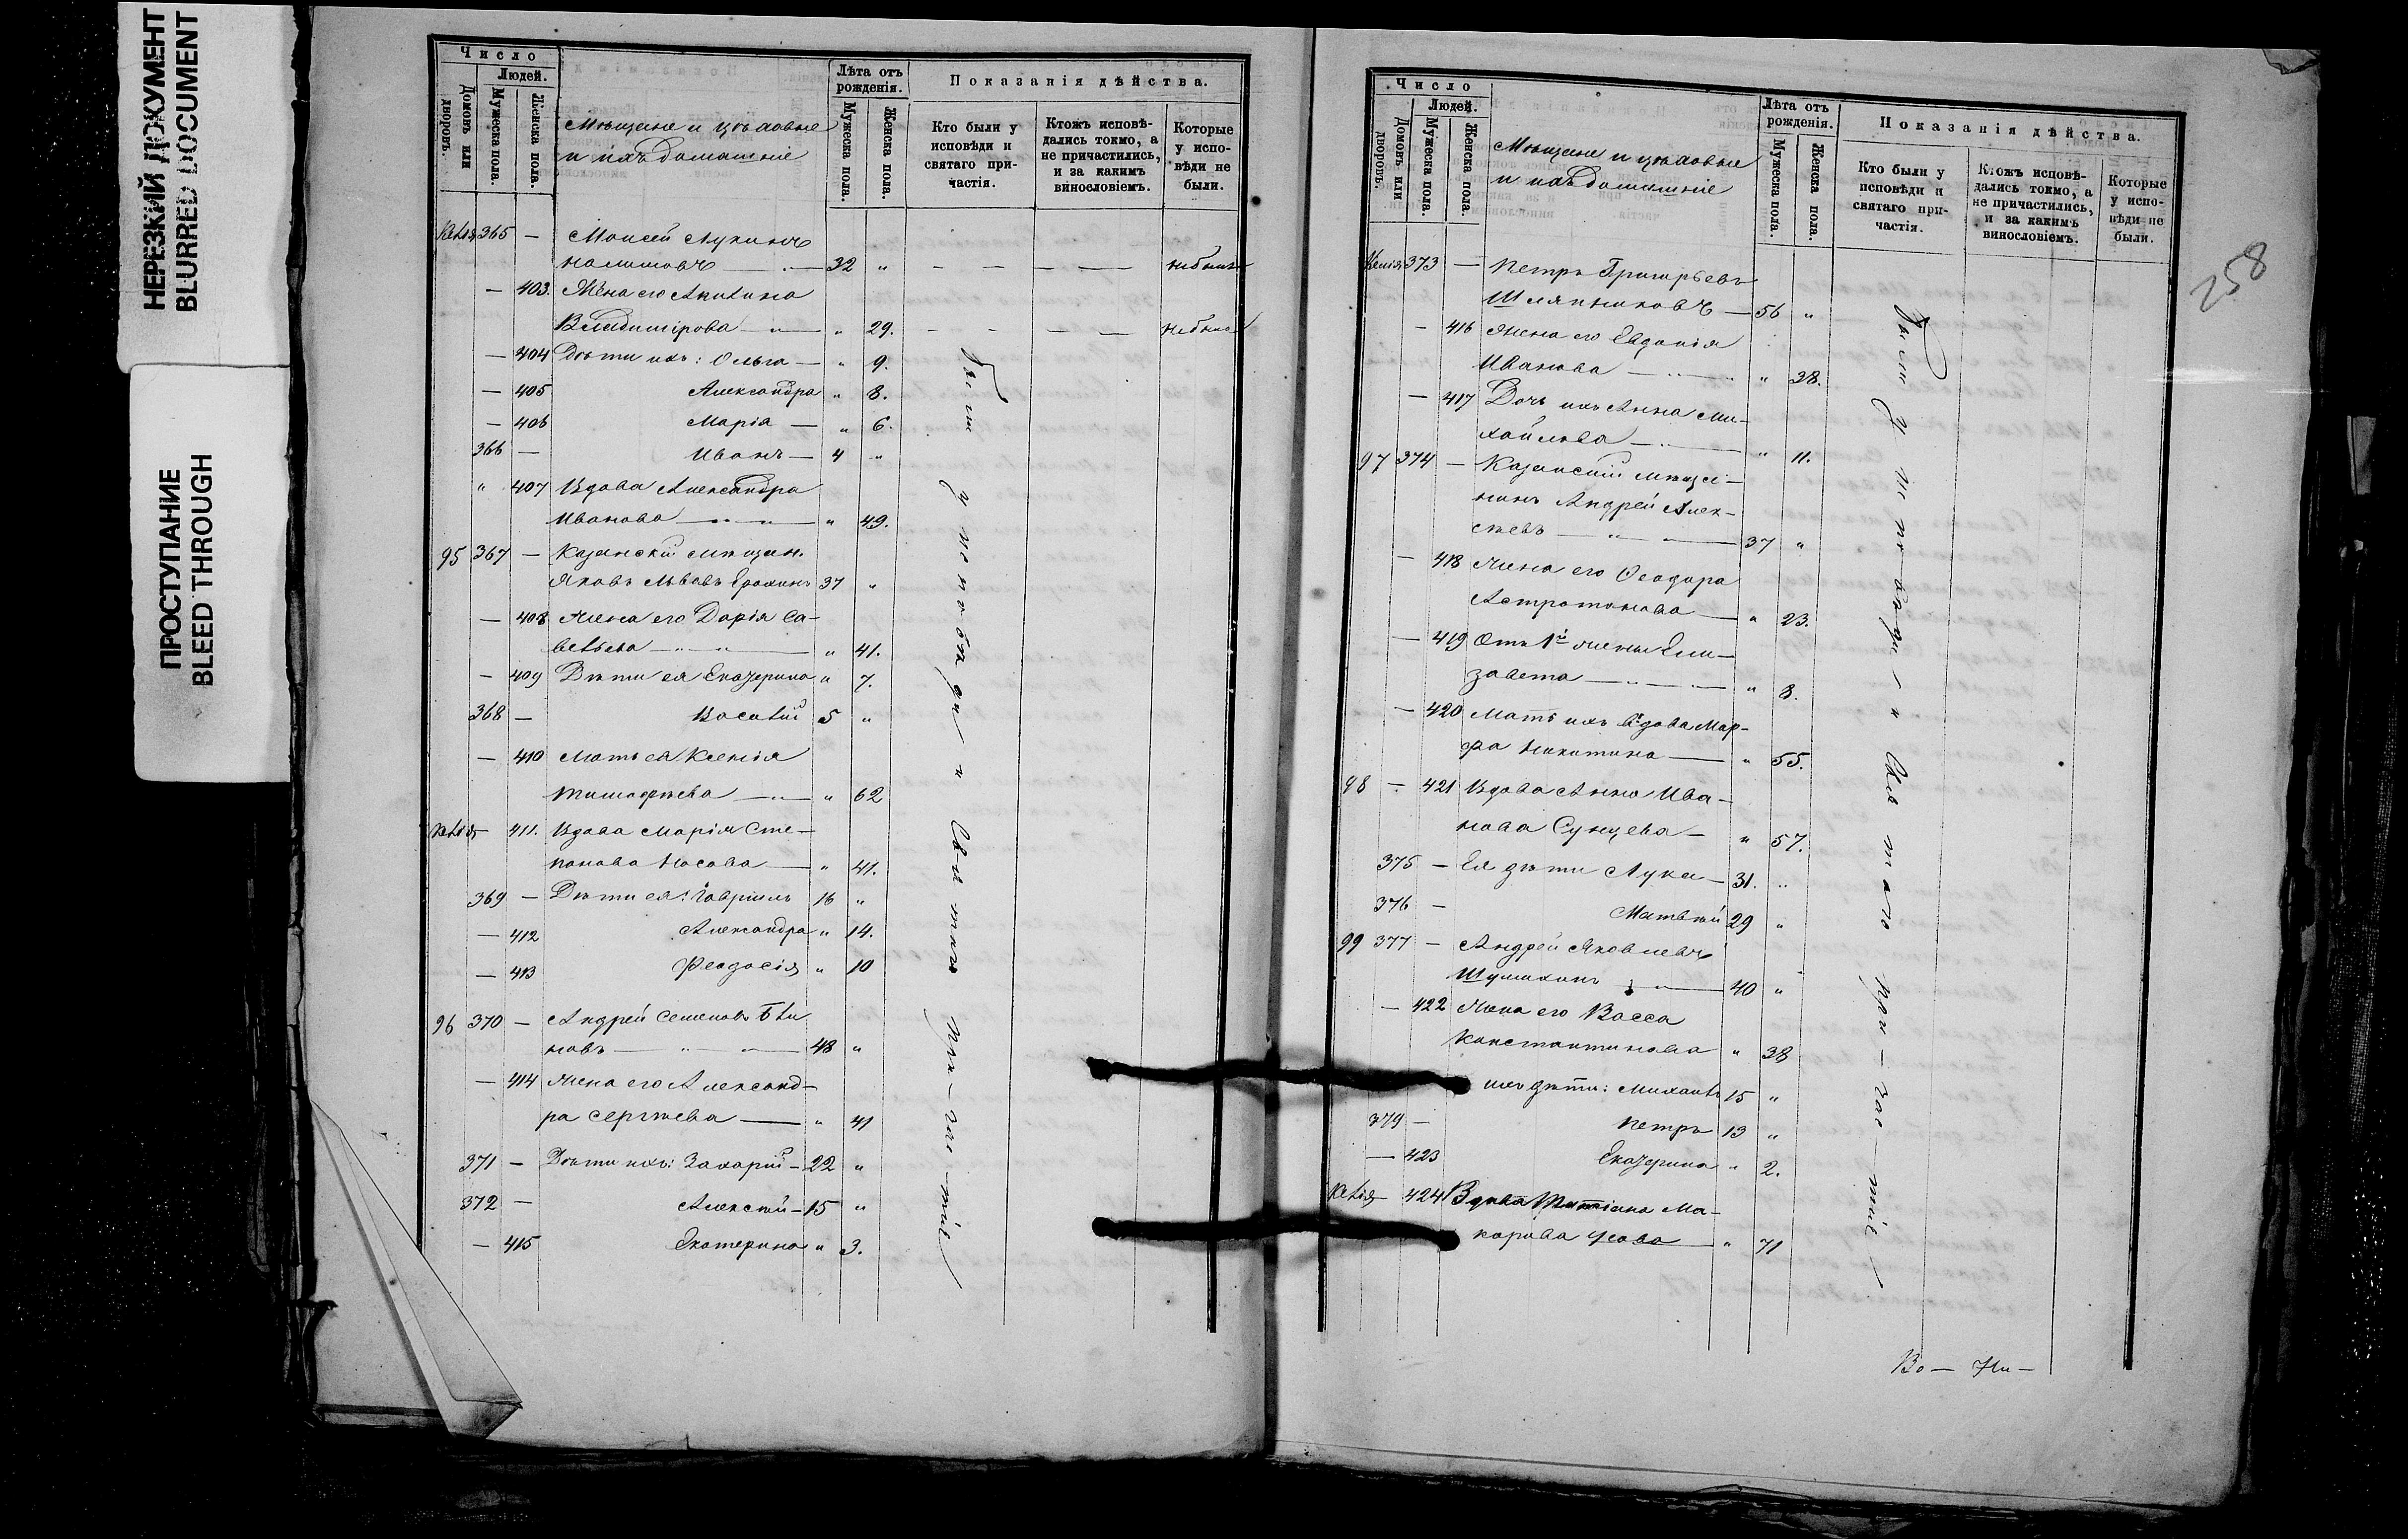 НЕРЕЗКИЙ ДОКУМЕНТ
BLURRED DOCUMENT
ПРОСТУПАНИЕ
BLEED THROUGH
Число
Людей.
Домовъ или дворовъ.
Мужеска пола.
Женска пола.
Мѣщане и цѣховые
и ихъ домашніе
Лѣта отъ рожденія.
Мужеска пола.
Женска пола.
Показанія дѣйства.
Кто были у исповѣди и святаго причастія.
Ктожъ исповѣдались токмо, а не причастились, и за какимъ винословіемъ.
Которые у исповѣди не были.
365 — Моисей Лукинъ
— 32 „ — — — — небылъ
— 403. Жена его
Владимірова — „ 29. — — — — небыла
— 404 Дѣти ихъ: Ольга — „ 9.
— 405 Александра „ 8.
— 406 Марія — „ 6.
366 — Иванъ — 4 „
„ 407 Вдова Александра
Иванова — „ — „ 49.
95 367 — Казанскій мѣщан.
Яковъ Львовъ 37 „
— 408 Жена его Дарія Са-
вельева — „ — „ 41.
— 409 Дѣти ея Екатерина „ 7.
368 — Василій 5 „
— 410 Мать ея Ксенія
Тимофѣева — „ 62
— 411. Вдова Марія Сте-
панова Носова — „ 41.
369 — Дѣти ея: Гавріилъ 16 „
— 412 Александра „ 14.
— 413 Феодосія „ 10
96 370 — Андрей Семеновъ Бли
новъ — „ — 48 „
— 414 Жена его Александ-
ра Сергѣева — „ 41
371 — Дѣти ихъ: Захарій — 22 „
372 — Алексѣй — 15 „
— 415 Екатерина „ 3.
Были у исповѣди и Святаго при-час-тія
258
Число
Людей.
Домовъ или дворовъ.
Мужеска пола.
Женска пола.
Мѣщане и цѣховые
и ихъ домашніе
Лѣта отъ рожденія.
Мужеска пола.
Женска пола.
Показанія дѣйства.
Кто были у исповѣди и святаго причастія.
Ктожъ исповѣдались токмо, а не причастились, и за какимъ винословіемъ.
Которые у исповѣди не были.
373 — Петръ Григорьевъ
Шляпниковъ — 56 „
— 416 Жена его Евдокія
Иванова — „ — „ 38.
— 417 Дочь ихъ Анна Ми-
хайлова — „ 11.
97 374 — Казанскій мѣща-
нинъ Андрей Алек-
сѣевъ — „ — 37 „
— 418 Жена его Феодора
— „ 23.
— 419 Отъ 1й жены Ели-
завета — „ — „ 8.
— 420 Мать ихъ вдова Мар-
фа Никитина — „ 55.
98 — 421 Вдова Анна Ива-
нова Сунцева — „ 57.
375 — Ея дѣти Лука — 31. „
376 — Матвѣй 29 „
99 377 — Андрей Яковлевъ
Шумихинъ — 40 „
— 422 Жена его Васса
Константинова „ 38
ихъ дѣти: Михаилъ 15 „
379 — Петръ 13 „
— 423 Екатерина „ 2.
— 424 Вдова Татіана Ма-
карова Усова — „ 71
Были у исповѣди и Святаго при-час-тія